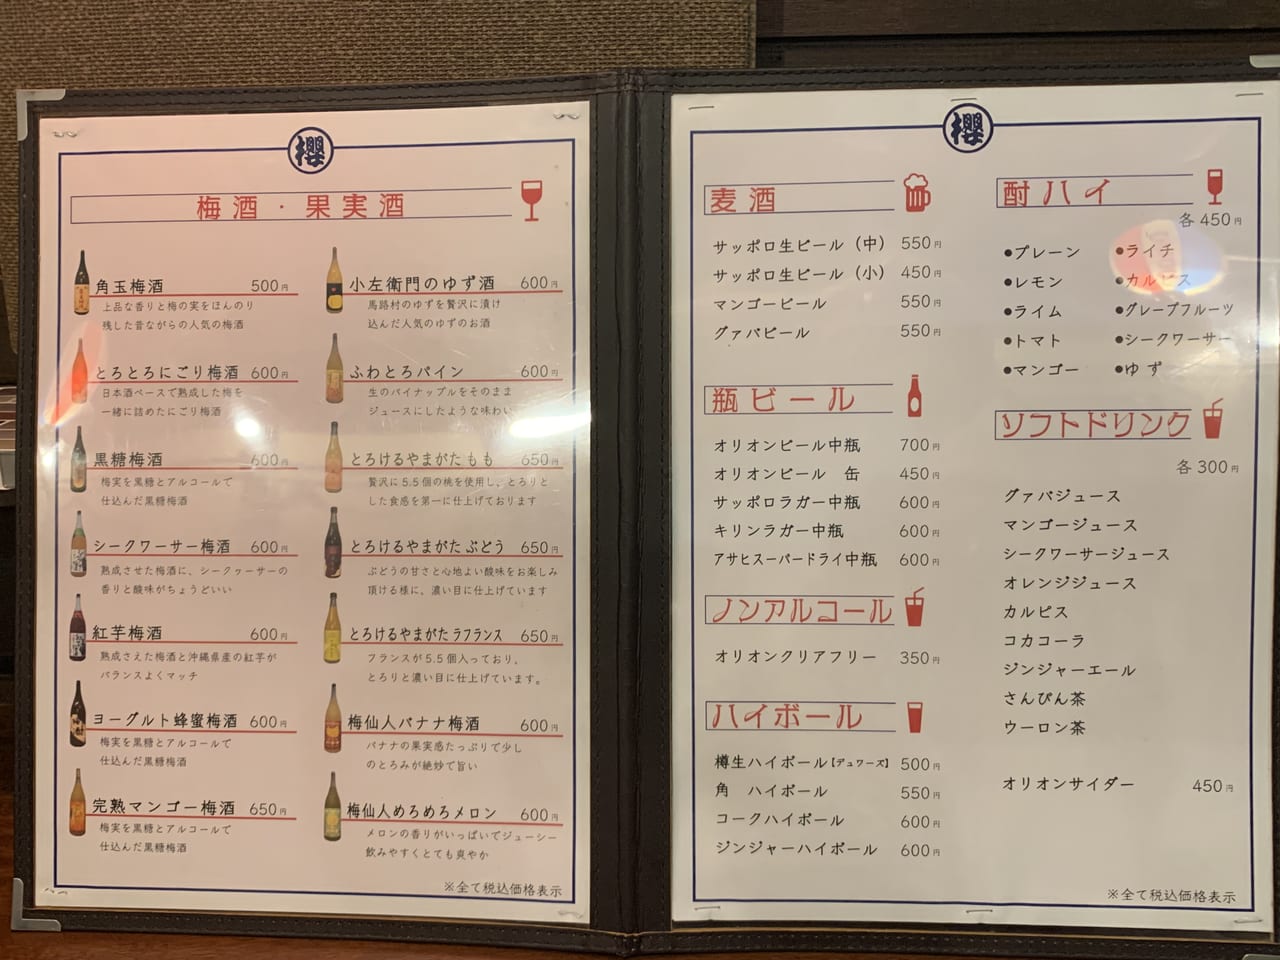 櫻
梅酒・果実酒
角玉梅酒 500円
上品な香りと梅の実をほんのり
残した昔ながらの人気の梅酒
とろとろにごり梅酒 600円
日本酒ベースで熟成した梅を
一緒に詰めたにごり梅酒
黒糖梅酒 600円
梅実を黒糖とアルコールで
仕込んだ黒糖梅酒
シークワーサー梅酒 600円
熟成させた梅酒に、シークヮーサーの
香りと酸味がちょうどいい
紅芋梅酒 600円
熟成さえた梅酒と沖縄県産の紅芋が
バランスよくマッチ
ヨーグルト蜂蜜梅酒 600円
梅実を黒糖とアルコールで
仕込んだ黒糖梅酒
完熟マンゴー梅酒 650円
梅実を黒糖とアルコールで
仕込んだ黒糖梅酒
小左衛門のゆず酒 600円
馬路村のゆずを贅沢に漬け
込んだ人気のゆずのお酒
ふわとろパイン 600円
生のパイナップルをそのまま
ジュースにしたような味わい
とろけるやまがたもも 650円
贅沢に5.5個の桃を使用し、とろりと
した食感を第一に仕上げております
とろけるやまがたぶどう 650円
ぶどうの甘さと心地よい酸味をお楽しみ
頂ける様に、濃い目に仕上げています
とろけるやまがたラフランス 650円
フランスが5.5個入っており、
とろりと濃い目に仕上げています。
梅仙人バナナ梅酒 600円
バナナの果実感たっぷりで少し
のとろみが絶妙で旨い
梅仙人めろめろメロン 600円
メロンの香りがいっぱいでジューシー
飲みやすくとても爽やか
※全て税込価格表示
櫻
麦酒
サッポロ生ビール（中） 550円
サッポロ生ビール（小） 450円
マンゴービール 550円
グァバビール 550円
瓶ビール
オリオンビール中瓶 700円
オリオンビール 缶 450円
サッポロラガー中瓶 600円
キリンラガー中瓶 600円
アサヒスーパードライ中瓶 600円
ノンアルコール
オリオンクリアフリー 350円
ハイボール
樽生ハイボール【デュワーズ】 500円
角 ハイボール 550円
コークハイボール 600円
ジンジャーハイボール 600円
酎ハイ
各450円
●プレーン ●ライチ
●レモン ●カルピス
●ライム ●グレープフルーツ
●トマト ●シークワーサー
●マンゴー ●ゆず
ソフトドリンク
各300円
グァバジュース
マンゴージュース
シークワーサージュース
オレンジジュース
カルピス
コカコーラ
ジンジャーエール
さんぴん茶
ウーロン茶
オリオンサイダー 450円
※全て税込価格表示